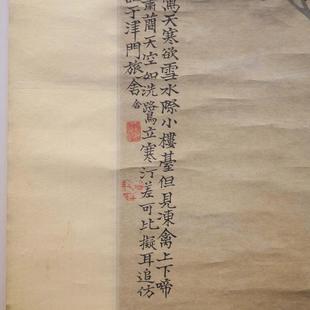 天寒欲雪水際小樓臺但見凍禽上下啼
蕭蕳天空如洗鷺立寒汀差可比擬耳追仿
于津門旅舍